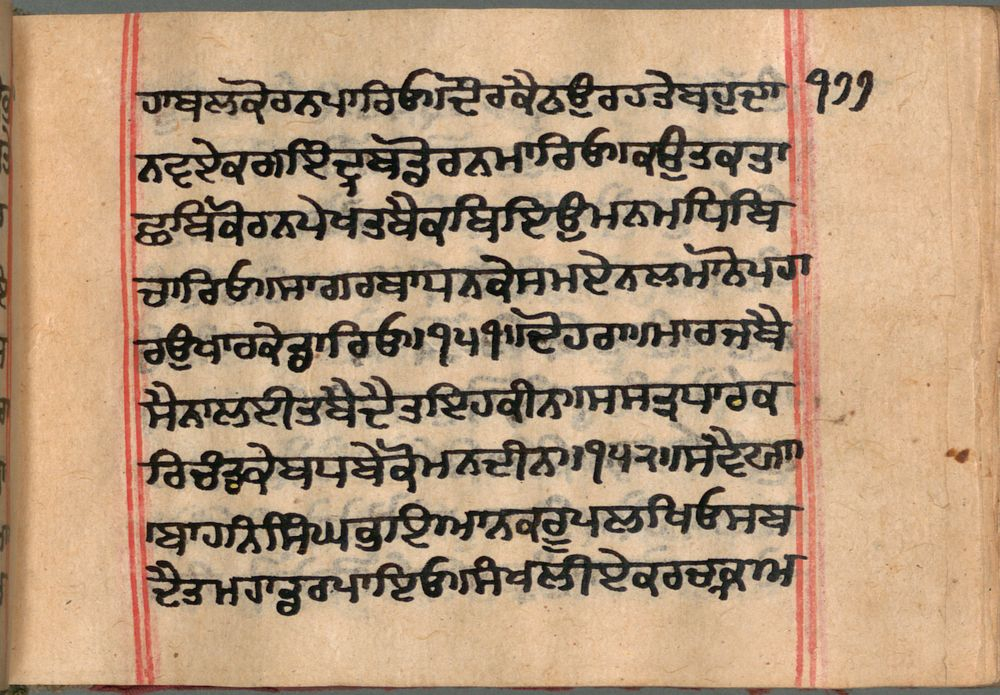 ਹਾਬਲਕੋਰਨਪਾਰਿਓ॥ਦੌਰਕੈਨਉਰਹਤੇਬਹੁਦਾ ੧੭੭
ਨਵ੍ਏਕਗਇੰਦ੍ਰਬਡੋਰਨਮਾਰਿਓ॥ਕਉਤਕਤਾ
ਛਬਿਕੋਰਨਪੇਖਤਬੈਕਬਿਇਉਮਨਮਧਿਬਿ
ਚਾਰਿਓ॥ਸਾਗਰਬਾਧਨਕੇਸਮਏਨਲਮਾਨੋਪਹਾ
ਰਉਖਾਰਕੇਡਾਰਿਓ॥੧੫੧॥ਦੋਹਰਾ॥ਮਾਰਜਬੈ
ਸੈਨਾਲਈਤਬੈਦੈਤਇਹਕੀਨ॥ਸਸਤ੍ਰਧਾਰਕ
ਰਿਚੰਡਕੇਬਧਬੇਕੋਮਨਦੀਨ॥੧੫੨॥ਸ੍ਵੈਯਾ॥
ਬਾਹਨਿਸਿੰਘਭਇਆਨਕਰੂਪਲਖਿਓਸਬ
ਦੈਤਮਹਾਡਰਪਾਇਓ॥ਸੰਖਲੀਏਕਰਚਕ੍ਰਅ